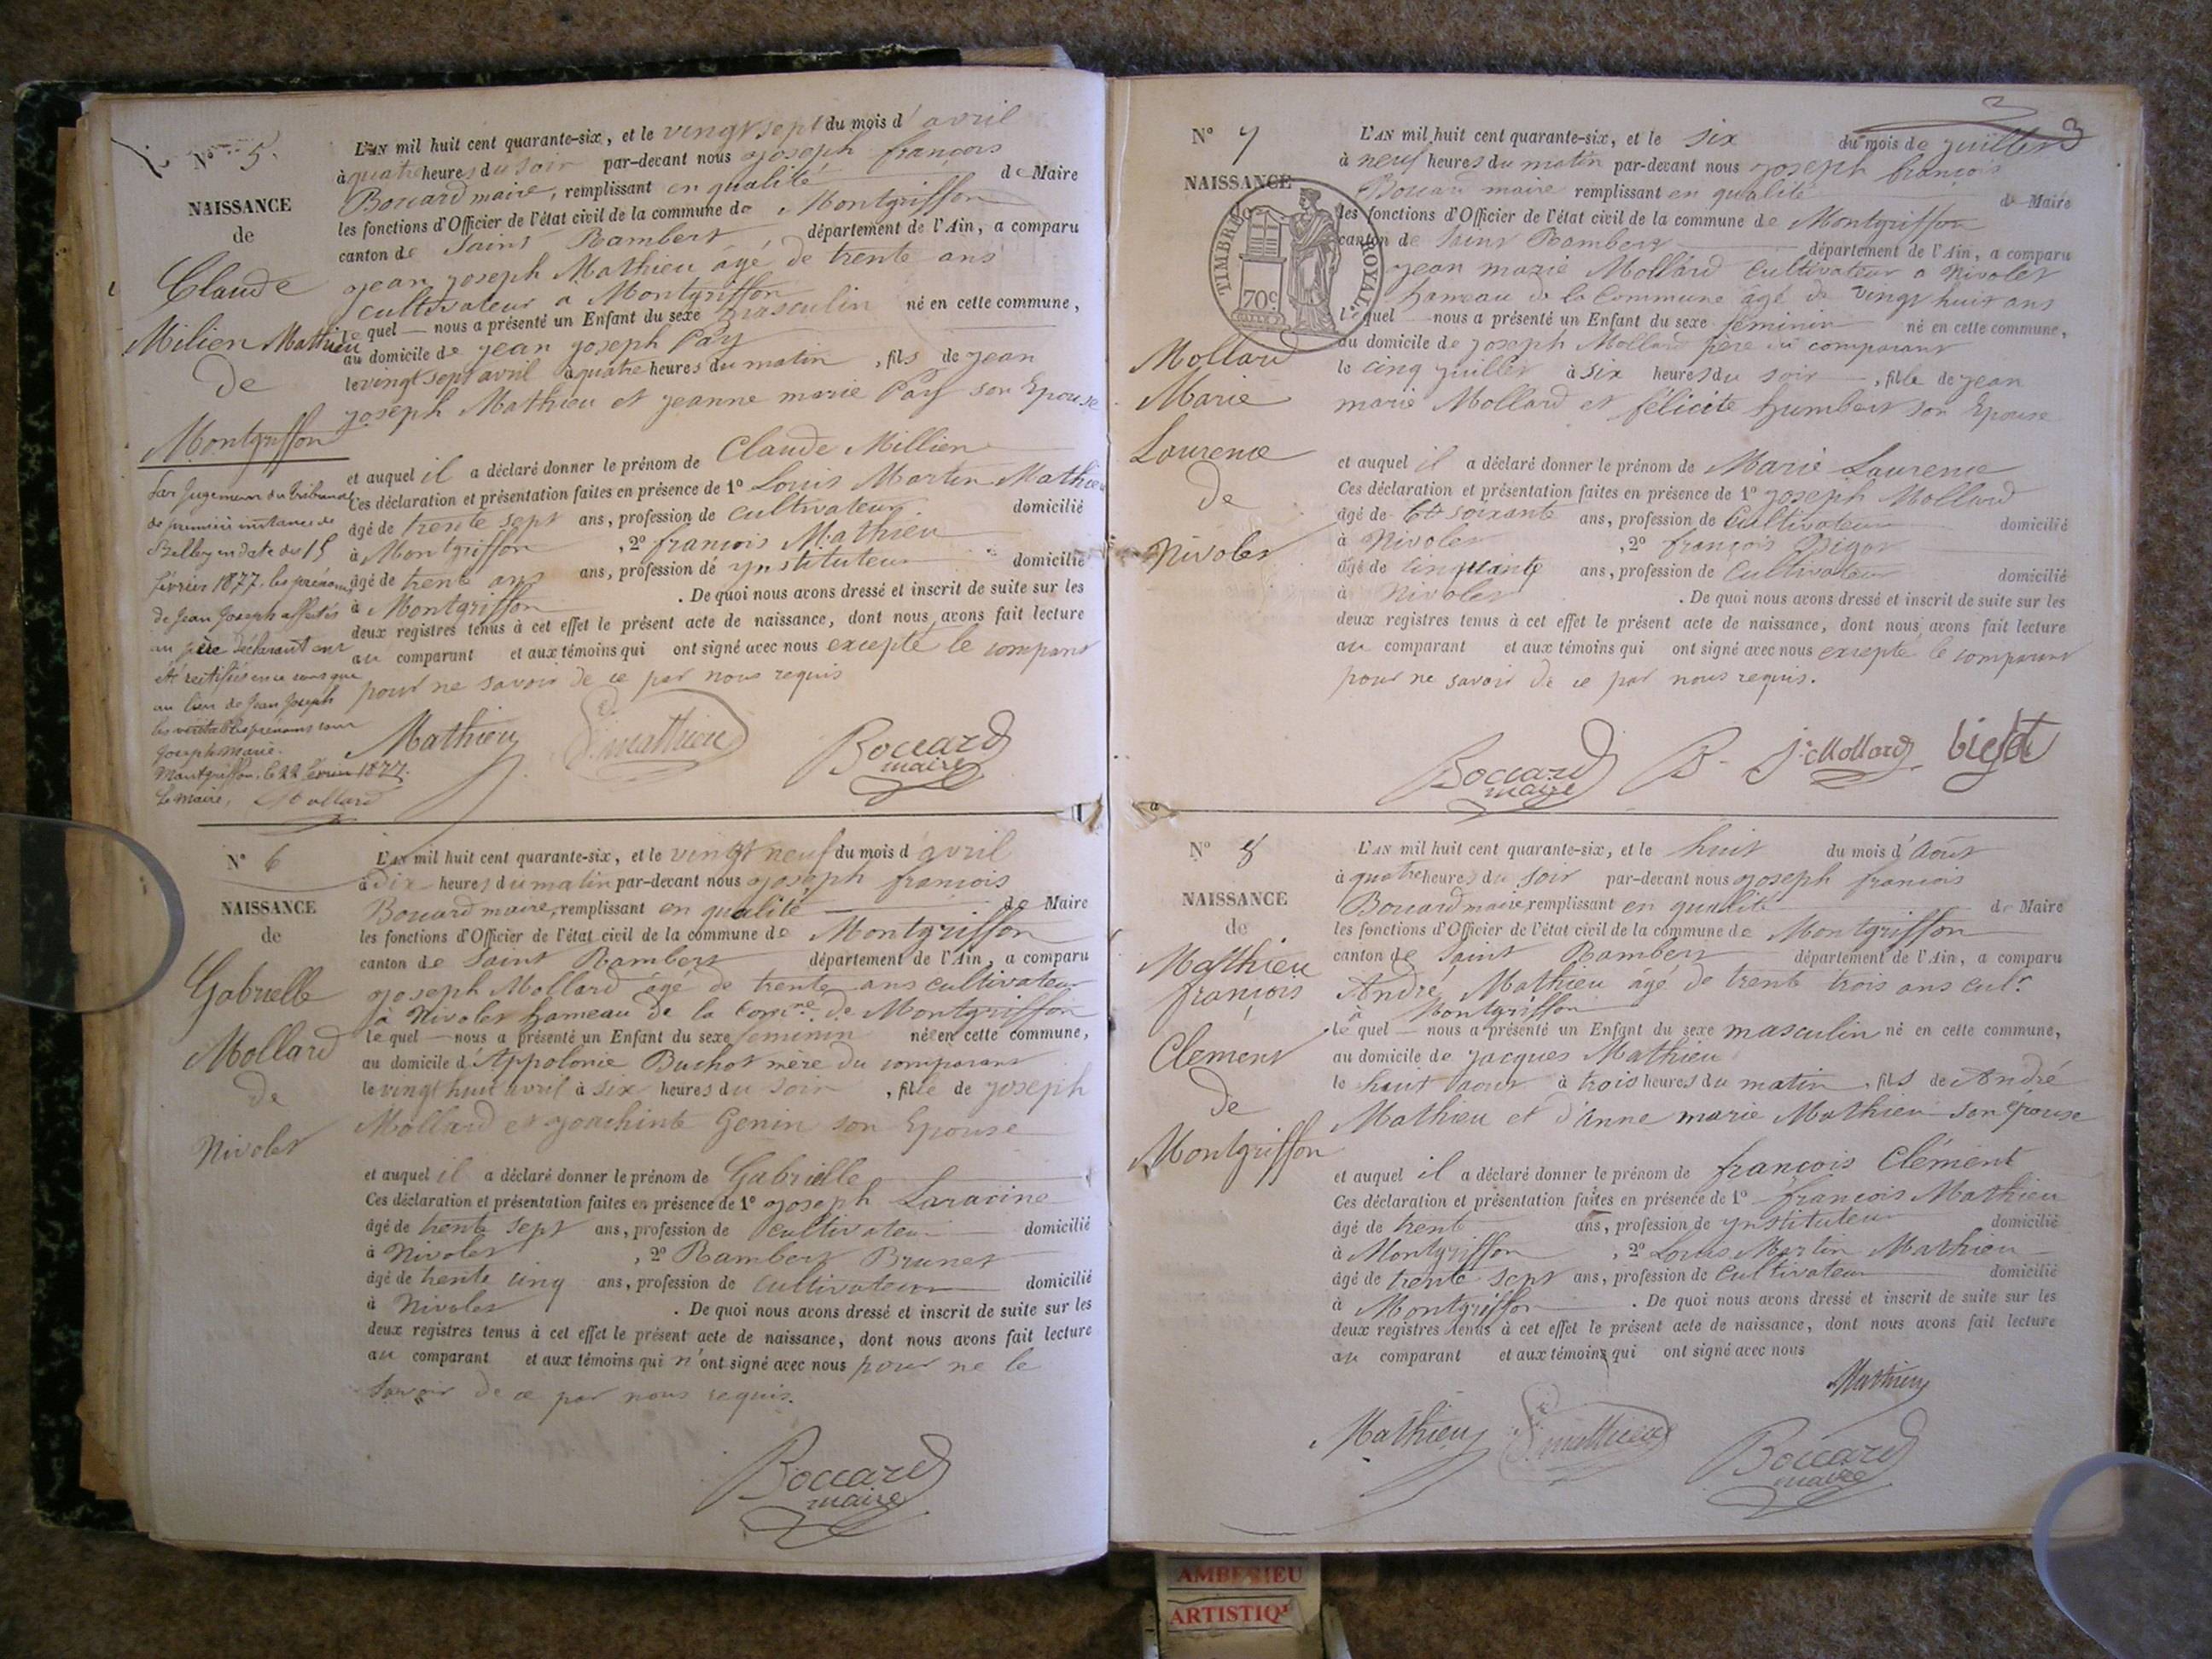 N° 5.
NAISSANCE
de
Claude
Milien Mathieu
de
Montgriffon
Par Jugement du Tribunal
de première instance de
Belley en date du 15
février 1877, les prénoms
de Jean Joseph affectés
au père déclarant ont
été rectifiés en ce sens que
au lieu de Jean Joseph
les véritables prénoms sont
Joseph Marie.
Montgriffon, le 22 février 1877.
Le Maire, Mollard
L'AN mil huit cent quarante-six, et le vingt sept du mois d'avril
à quatre heures du soir par-devant nous Joseph françois
Boccard maire, remplissant en qualité de Maire
les fonctions d'Officier de l'état civil de la commune de Montgriffon
canton de Saint Rambert département de l'Ain, a comparu
jean joseph Mathieu âgé de trente ans
cultivateur a Montgriffon
le quel nous a présenté un Enfant du sexe masculin né en cette commune,
au domicile de jean joseph Pay
le vingt sept avril à quatre heures du matin, fils de jean
joseph Mathieu et jeanne marie Pay son Epouse
et auquel il a déclaré donner le prénom de Claude Millien
Ces déclaration et présentation faites en présence de 1° Louis Martin Mathieu
âgé de trente sept ans, profession de cultivateur domicilié
à Montgriffon, 2° françois Mathieu
âgé de trente ans ans, profession de ynstituteur domicilié
à Montgriffon. De quoi nous avons dressé et inscrit de suite sur les
deux registres tenus à cet effet le présent acte de naissance, dont nous avons fait lecture
au comparant et aux témoins qui ont signé avec nous excepté le comparant
pour ne savoir de ce par nous requis
Mathieu f. mathieu Boccard
maire
N° 6
NAISSANCE
de
Gabrielle
Mollard
de
Nivolet
L'AN mil huit cent quarante-six, et le vingt neuf du mois d'avril
à dix heures du matin par-devant nous joseph françois
Boccard maire, remplissant en qualité de Maire
les fonctions d'Officier de l'état civil de la commune de Montgriffon
canton de Saint Rambert département de l'Ain, a comparu
joseph Mollard âgé de trente ans cultivateur
à Nivolet hameau de la Comne. de Montgriffon
le quel nous a présenté un Enfant du sexe feminin née en cette commune,
au domicile d'Appolonie Buchot mère du comparant
le vingt huit avril à six heures du soir, fille de joseph
Mollard et joachinte Genin son Epouse
et auquel il a déclaré donner le prénom de Gabrielle
Ces déclaration et présentation faites en présence de 1° joseph Laracine
âgé de trente sept ans, profession de cultivateur domicilié
à Nivolet, 2° Rambert Brunet
âgé de trente cinq ans, profession de cultivateur domicilié
à Nivolet. De quoi nous avons dressé et inscrit de suite sur les
deux registres tenus à cet effet le présent acte de naissance, dont nous avons fait lecture
au comparant et aux témoins qui n'ont signé avec nous pour ne le
savoir de ce par nous requis.
Boccard
maire
3
N° 7
NAISSANCE
TIMBRE ROYAL
70c
Mollard
Marie
Laurence
de
Nivolet
L'AN mil huit cent quarante-six, et le six du mois de juillet
à neuf heures du matin par-devant nous joseph françois
Boccard maire remplissant en qualité de Maire
les fonctions d'Officier de l'état civil de la commune de Montgriffon
canton de Saint Rambert département de l'Ain, a comparu
jean marie Mollard cultivateur a Nivolet
hameau de la Commune âgé de vingt huit ans
lequel nous a présenté un Enfant du sexe féminin né en cette commune,
au domicile de joseph Mollard père du comparant
le cinq juillet à six heures du soir, fille de jean
marie Mollard et félicité humbert son Epouse
et auquel il a déclaré donner le prénom de Marie Laurence
Ces déclaration et présentation faites en présence de 1° joseph Mollard
âgé de soixante ans, profession de Cultivateur domicilié
à Nivolet, 2° françois Bigot
âgé de cinquante ans, profession de Cultivateur domicilié
à Nivolet. De quoi nous avons dressé et inscrit de suite sur les
deux registres tenus à cet effet le présent acte de naissance, dont nous avons fait lecture
au comparant et aux témoins qui ont signé avec nous excepté le comparant
pour ne savoir de ce par nous requis.
Boccard
maire
B- J. Mollard bigot
N° 8
NAISSANCE
de
Mathieu
françois
Clement
de
Montgriffon
L'AN mil huit cent quarante-six, et le huit du mois d'Août
à quatre heures du soir par-devant nous joseph françois
Boccard maire remplissant en qualité de Maire
les fonctions d'Officier de l'état civil de la commune de Montgriffon
canton de Saint Rambert département de l'Ain, a comparu
André Mathieu âgé de trente trois ans culr.
à Montgriffon
le quel nous a présenté un Enfant du sexe masculin né en cette commune,
au domicile de jacques Mathieu
le huit aout à trois heures du matin, fils de André
Mathieu et d'Anne marie Mathieu son épouse
et auquel il a déclaré donner le prénom de françois Clément
Ces déclaration et présentation faites en présence de 1° françois Mathieu
âgé de trente ans, profession de ynstituteur domicilié
à Montgriffon, 2° Louis Martin Mathieu
âgé de trente sept ans, profession de Cultivateur domicilié
à Montgriffon. De quoi nous avons dressé et inscrit de suite sur les
deux registres tenus à cet effet le présent acte de naissance, dont nous avons fait lecture
au comparant et aux témoins qui ont signé avec nous
Mathieu
Mathieu f. mathieu Boccard
maire
AMBERIEU
ARTISTIQ